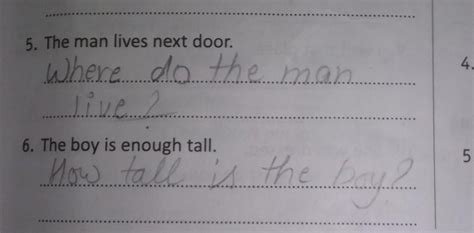 5. The man lives next door.
Where do the man
live?
4.
6. The boy is enough tall.
How tall is the boy?
5